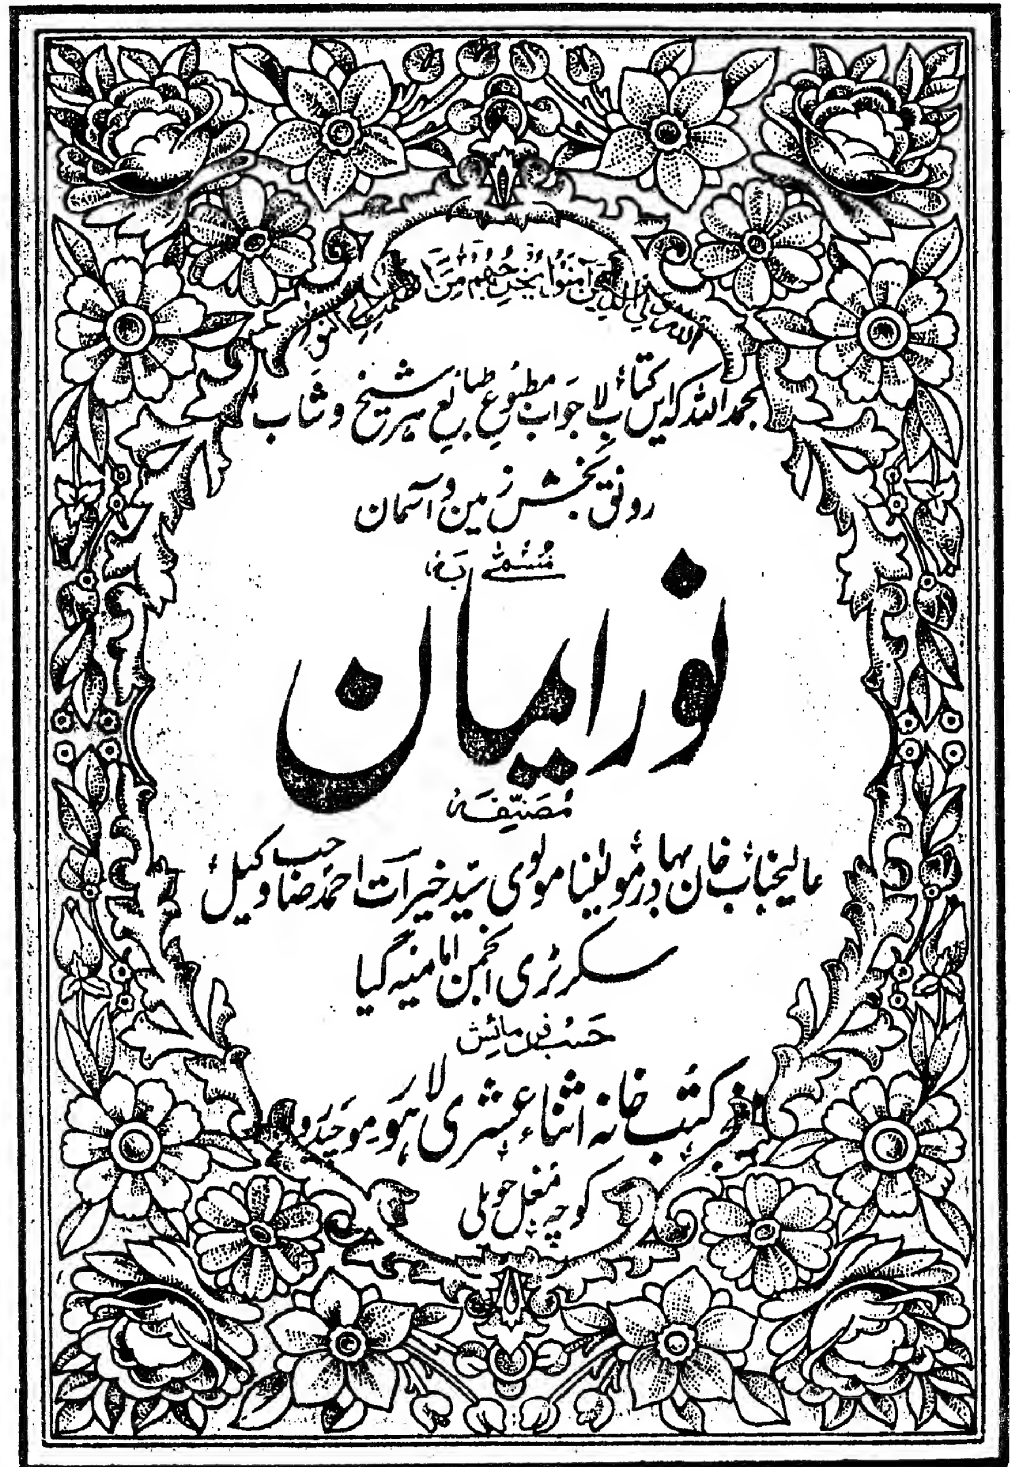 اللہ ولی الذین آمنوا یخرجھم من الظلمات الی النور
بحمد اللہ کہ ایں کتاب لاجواب مطبوع طبائع ہر شیخ و شاب
رونق بخش زمین و آسمان
مسمّٰی بہ
نور ایمان
مُصَنّفہ
عالیجناب خان بہادر مولٰینا مولوی سیّد خیرات احمد صاحب وکیل
سکرٹری انجمن امامیہ گیا
حسب فرمائش
کتب خانہ اثناء عشری لاہور موچیدروازہ
کوچہ مغل حویلی